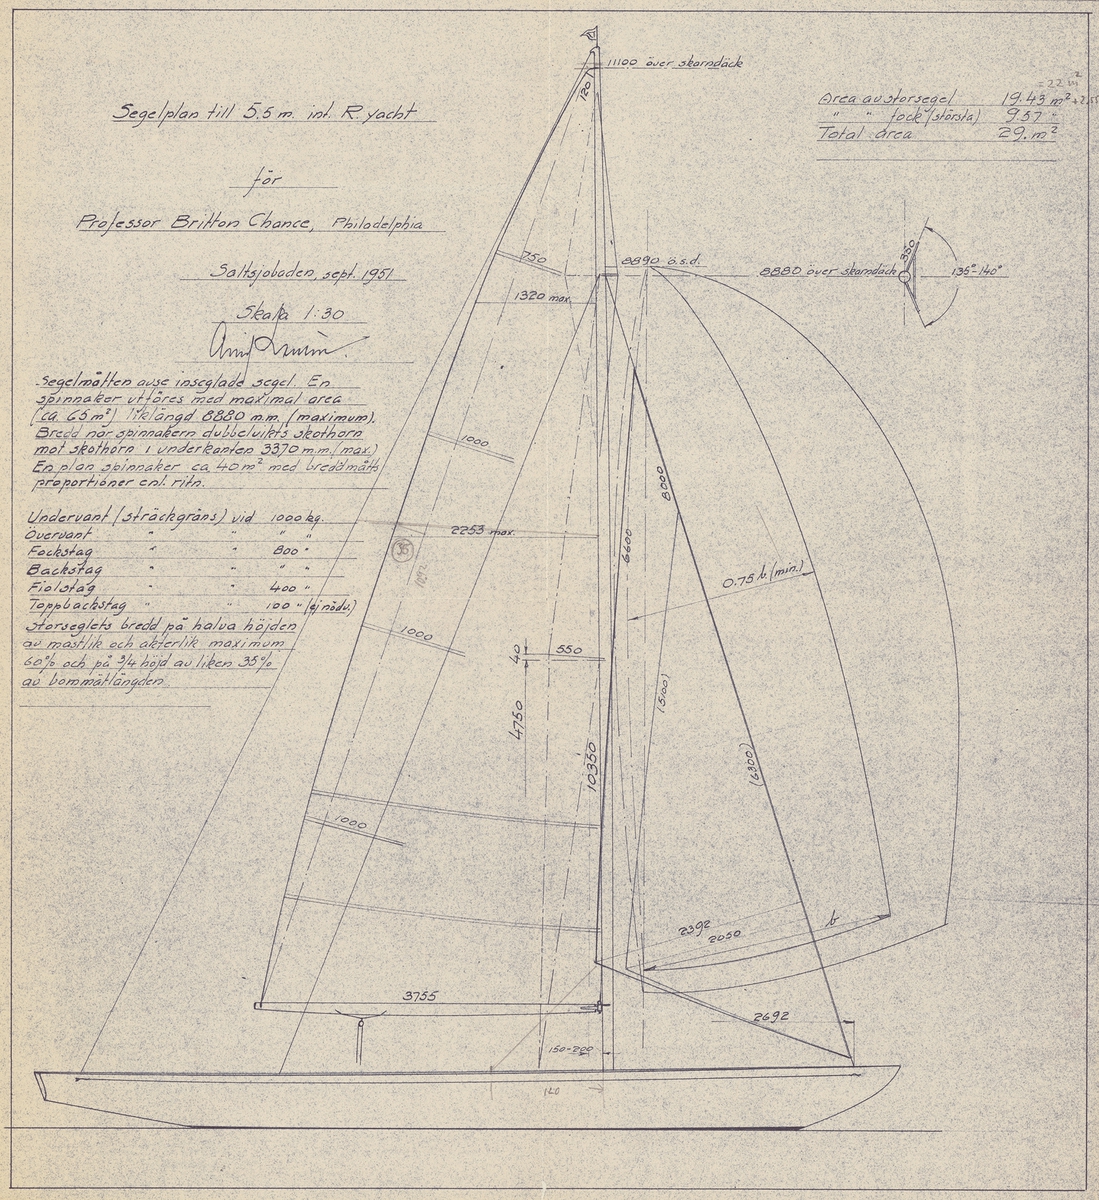 Segelplan till 5.5 m. int. R. yacht
för
Professor Britton Chance, Philadelphia
Saltsjobaden, sept. 1951
Skala 1:30
Segelmåtten avse inseglade segel. En
spinnaker utföres med maximal area
(ca. 65 m²) liklängd 8880 m.m. (maximum).
Bredd när spinnakern dubbelvikts skothorn
mot skothorn i underkanten 3370 m.m. (max.)
En plan spinnaker ca. 40 m² med breddmåtts
proportioner enl. ritn.
Undervant (sträckgräns) vid 1000 kg.
Övervant " " " "
Fockstag " " 800 "
Backstag " " " "
Fiolstag " " 400 "
Toppbackstag " " 100 " (ej nödv.)
Storseglets bredd på halva höjden
av mastlik och akterlik maximum
60% och på 3/4 höjd av liken 35%
av bommätlängden
11100 över skarndäck
120
22 m²
Area av storsegel 19.43 m²
" " fock (största) 9.57 "
Total area 29. m²
750
8890 ö.s.d.
8880 över skarndäck
350
135°-140°
1320 max.
1000
8000
2253 max.
6600
0.75 b. (min.)
1000
40
550
4750
(5100)
10350
(6300)
1000
2392
2050
b
3755
2692
150-200